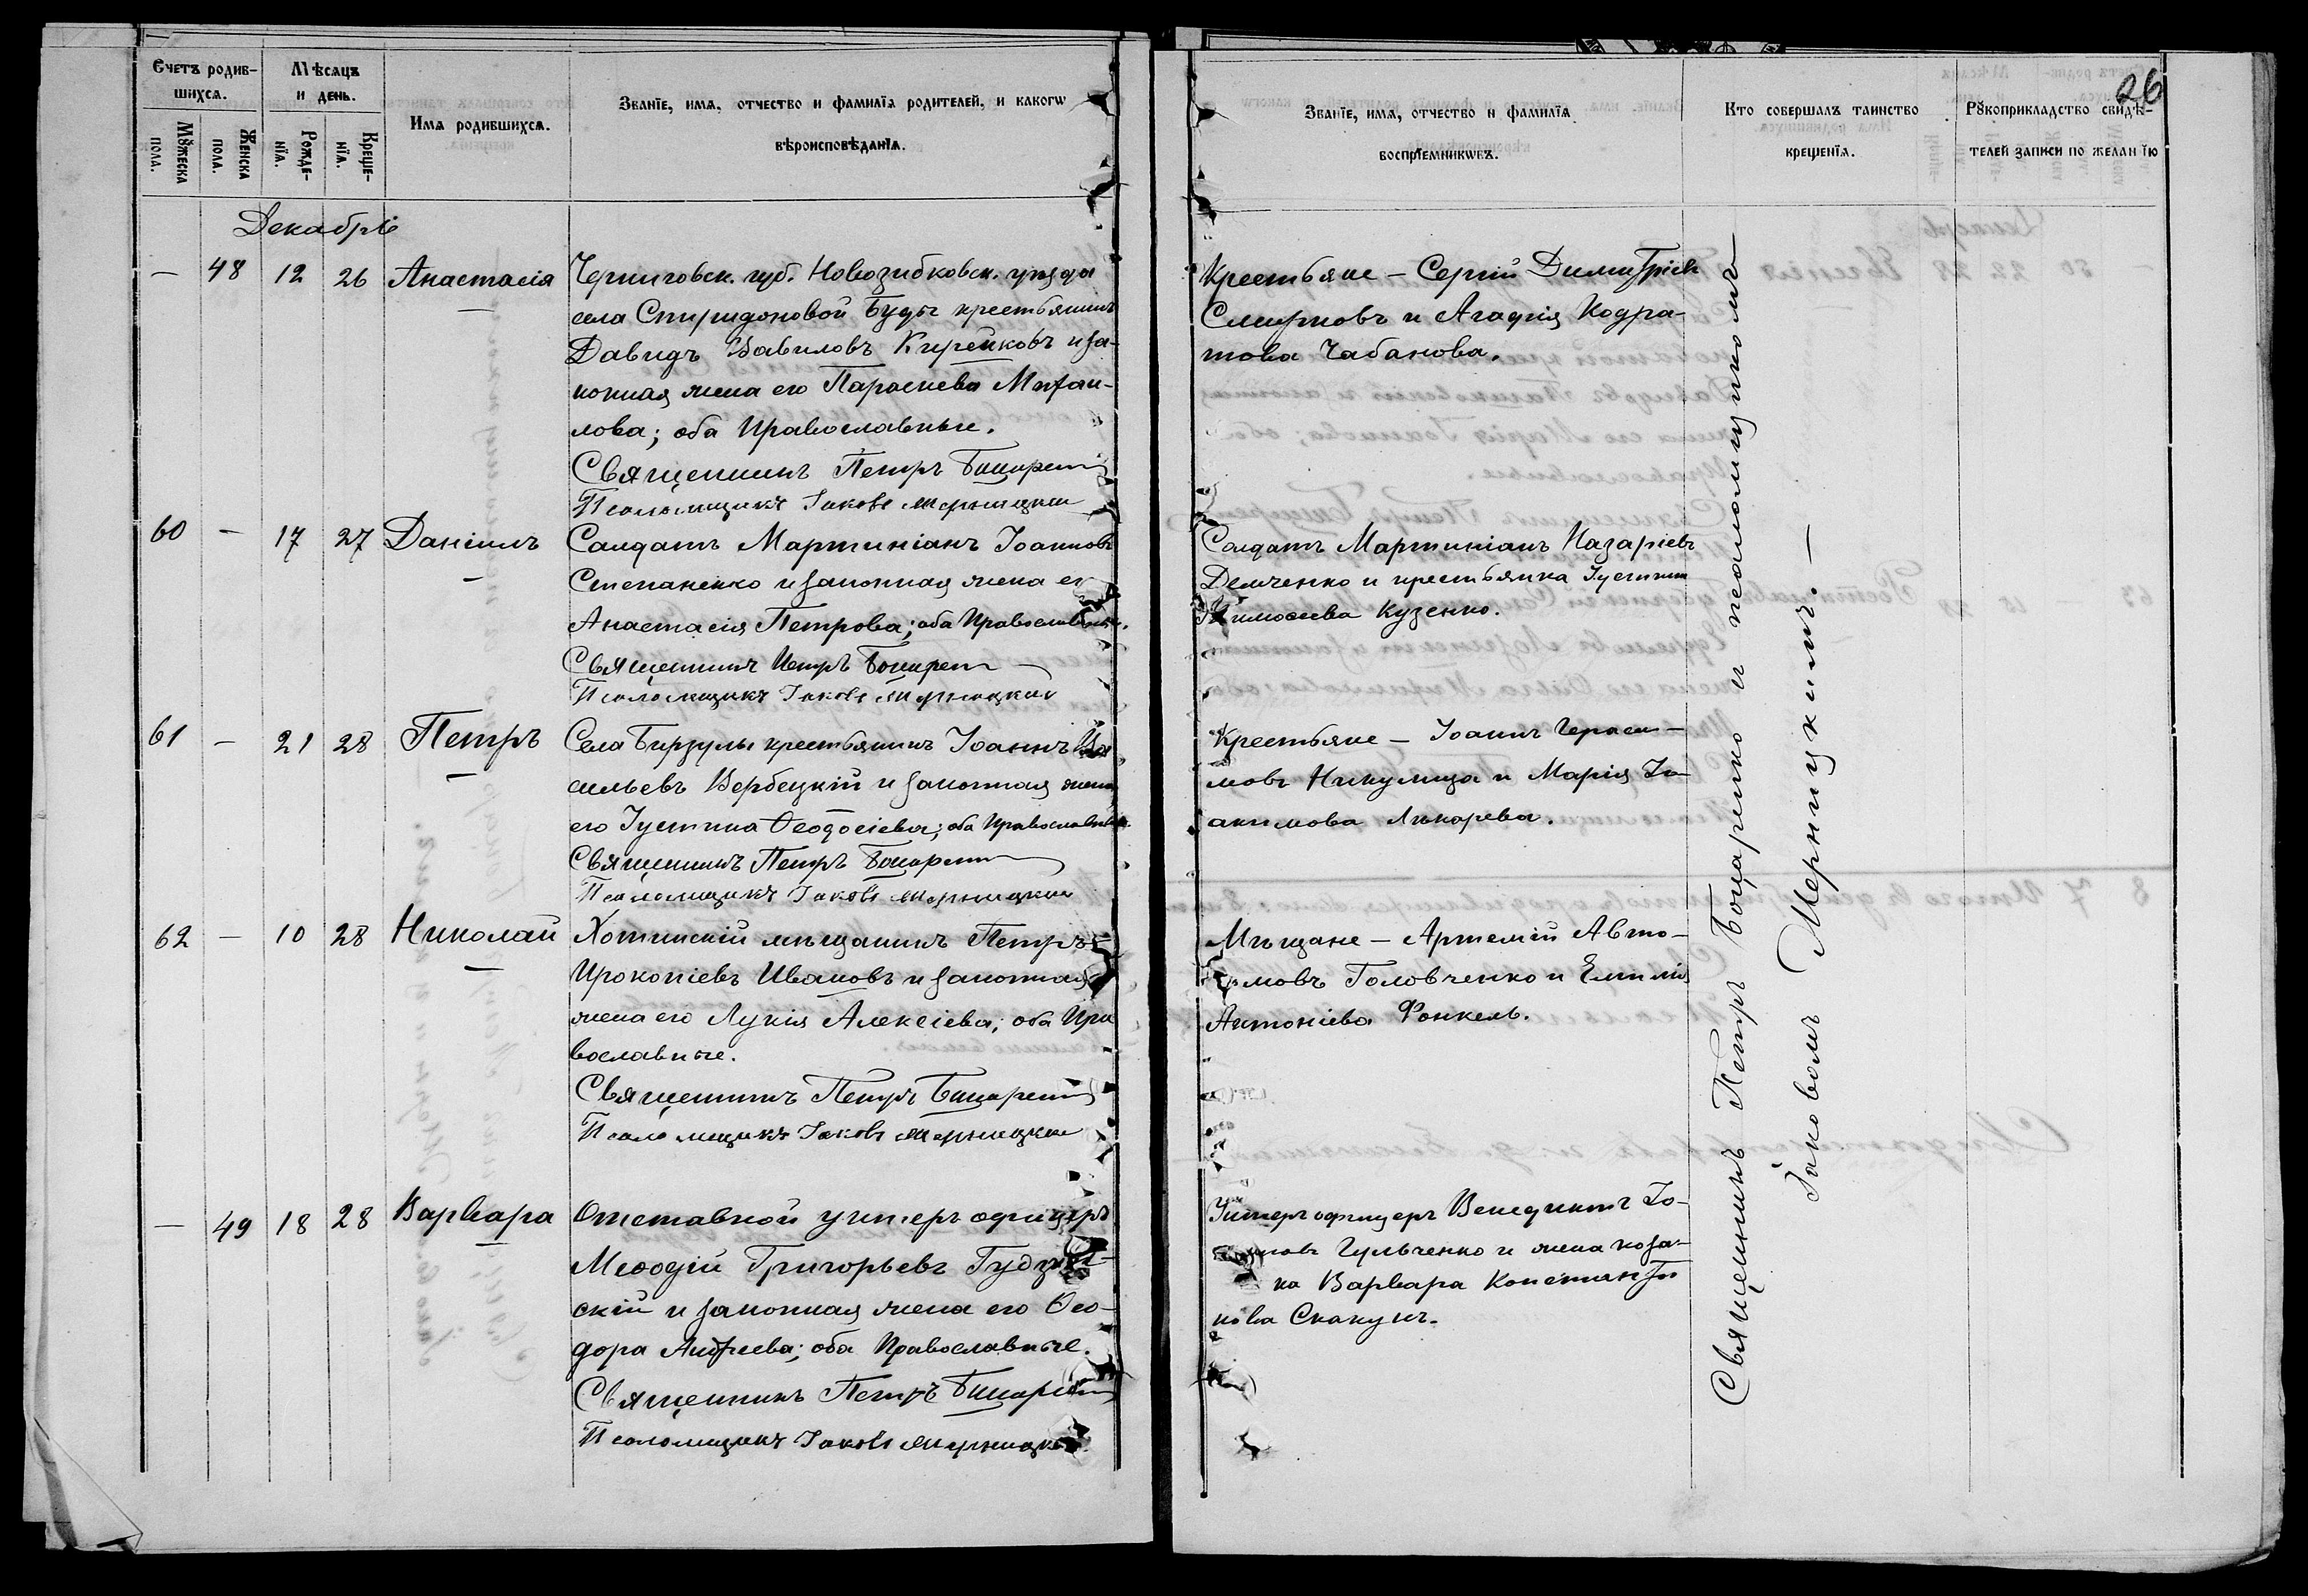 Счетъ родив-
шихся.
Мѣсяцъ
и день.
Имя родившихся.
Званїе, имя, отчество и фамилїя родителей, и какогѡ
вѣроисповѣданїя.
Мꙋжеска
пола.
Женска
пола.
Рожде-
нїя.
Креще-
нїя.
Декабрь
— 48 12 26 Анастасія
Черниговск. губ. Новозибковск. уѣзда
села Спиридоновой Буды крестьянинъ
Давидъ Вавиловъ Кирейковъ и за-
конная жена его Параскева Михаи-
лова; оба Православные.
Священникъ Петръ
Псаломщикъ Іаковъ Мерницкій
60 — 17 27 Даніилъ
Солдатъ Мартиніанъ Іоанновъ
Степаненко и законная жена его
Анастасія Петрова; оба Православные.
Священникъ Петръ
Псаломщикъ Іаковъ Мерницкій
61 — 21 28 Петръ
Села Бирзулы крестьянинъ Іоаннъ Ва
сильевъ Вербецкій и законная жена
его Іустина Ѳеодосіева; оба Православные.
Священникъ Петръ
Псаломщикъ Іаковъ Мерницкій
62 — 10 28 Николай
Хотинскій мѣщанинъ Петръ
Прокопіевъ Ивановъ и законная
жена его Лукія Алексіева; оба Пра
вославные.
Священникъ Петръ
Псаломщикъ Іаковъ Мерницкій
— 49 18 28 Варвара
Отставной унтеръ офицеръ
Меѳодій Григорьевъ
скій и законная жена его Ѳео-
дора Андреева; оба Православные.
Священникъ Петръ
Псаломщикъ Іаковъ Мерницкій
26
Званїе, имя, отчество и фамилїя
воспрїемникѡвъ.
Кто совершалъ таинство
крещенїя.
Рꙋкоприкладство свидѣ-
телей записи по желанїю
Крестьяне — Сергій Димитріевъ
Смирновъ и Агафія Кодра-
това Чабанова.
Солдатъ Мартиніанъ Назаріевъ
Демченко и крестьянка Іустина
Тимоѳеева Кузенко.
Крестьяне — Іоаннъ Гераси-
мовъ Никулица и Марія Іо-
акимова Лихарева.
Мѣщане — Артемій Авто-
номовъ Головченко и Емилія
Антоніева Фонкель.
Унтеръ офицеръ Венедиктъ Іо-
анновъ Гульченко и жена коза-
ка Варвара Константи
нова Скакунъ.
Священникъ Петръ Боцаренко и псаломщикомъ
Іаковомъ Мерницкимъ. —